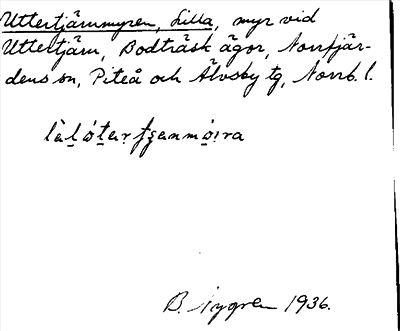 Uttertjärnmyren, Lilla, myr vid
Uttertjärn, Bodträsk ägor, Norrfjär-
dens sn, Piteå och Älvsby tg, Norrb. l.
B. Nygren 1936.